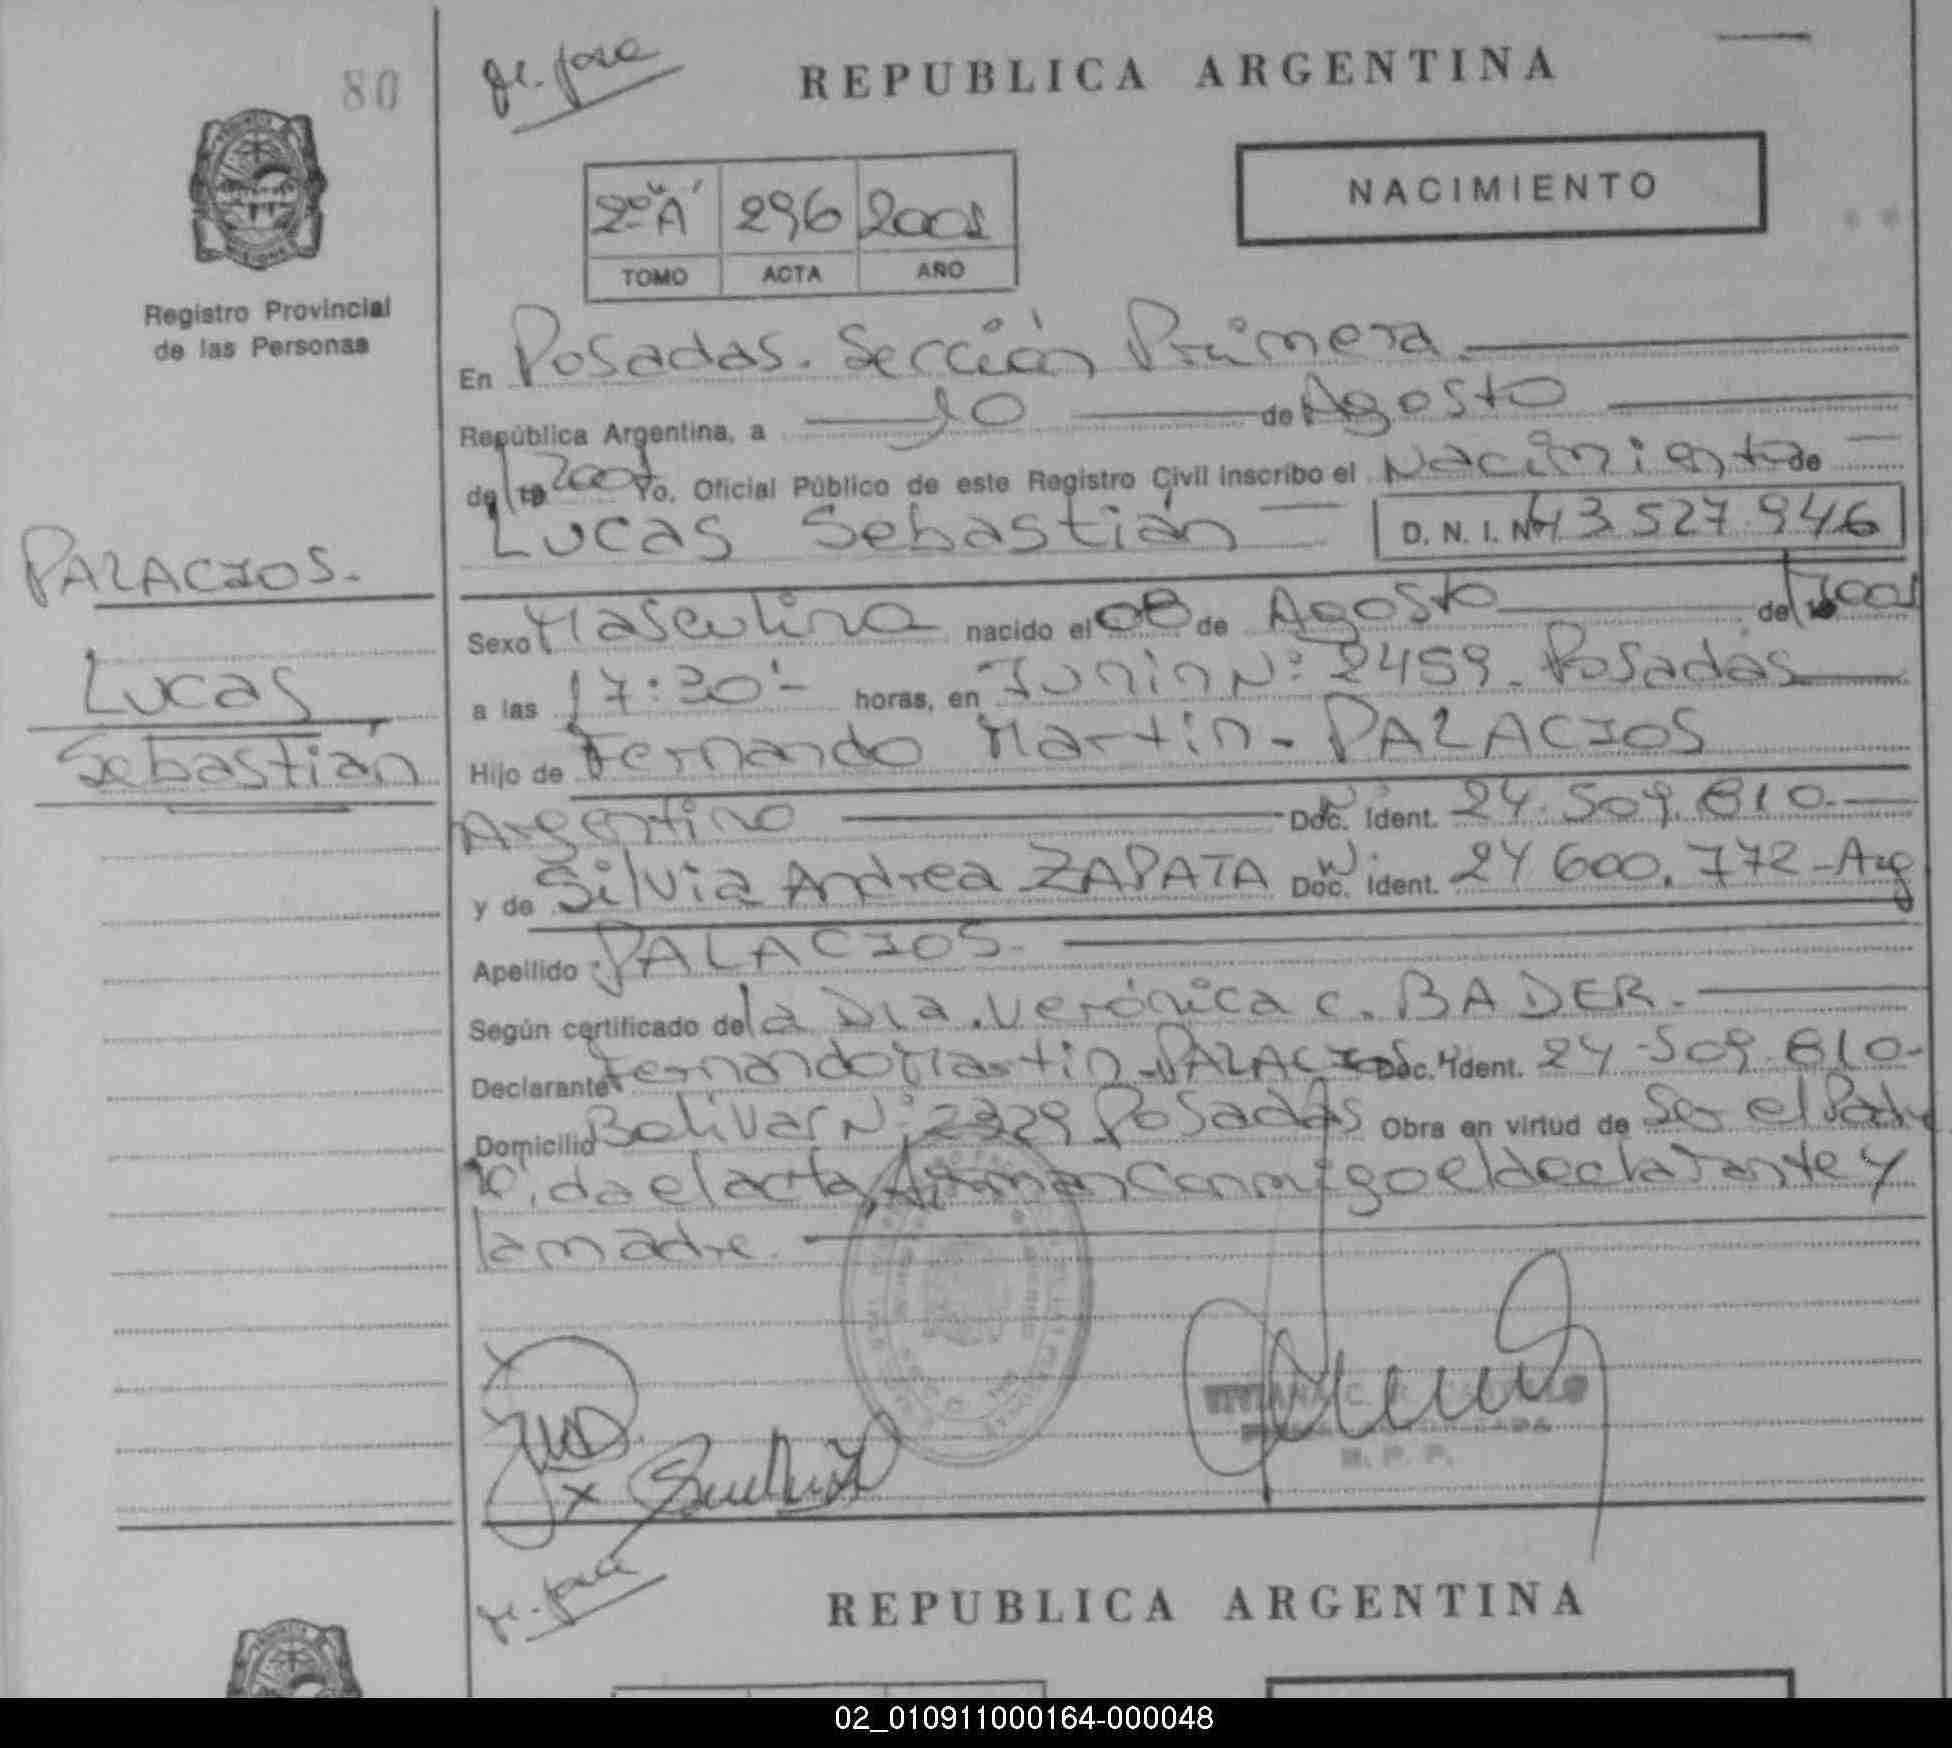 80
REPUBLICA ARGENTINA
NACIMIENTO
2º "A" 296 2001
TOMO ACTA AÑO
Registro Provincial
de las Personas
En Posadas. Sección Primera
República Argentina, a 10 de Agosto
de 19 2001 Yo. Oficial Público de este Registro Civil inscribo el Nacimiento de
Lucas Sebastián D. N. I. Nº 43.527.946
PALACIOS.
Lucas
Sebastián
Sexo Masculino nacido el 08 de Agosto de 19 2001
a las 17:30'- horas, en Junin Nº: 2459. Posadas
Hijo de Fernando Martin - PALACIOS
Argentino Doc. Ident. 24.509.810.
y de Silvia Andrea ZAPATA Doc. Ident. 24 600.772-Arg
Apellido PALACIOS.
Según certificado de la Dra. Verónica C. BADER.
Declarante Fernando Martin - PALACIOS Doc. Ident. 24-509.810-
Domicilio Bolivar Nº: 2329 Posadas Obra en virtud de Ser el Padre
da el acta, firman conmigo el declarante y
la madre.
M. P. P.
REPUBLICA ARGENTINA
02_010911000164-000048